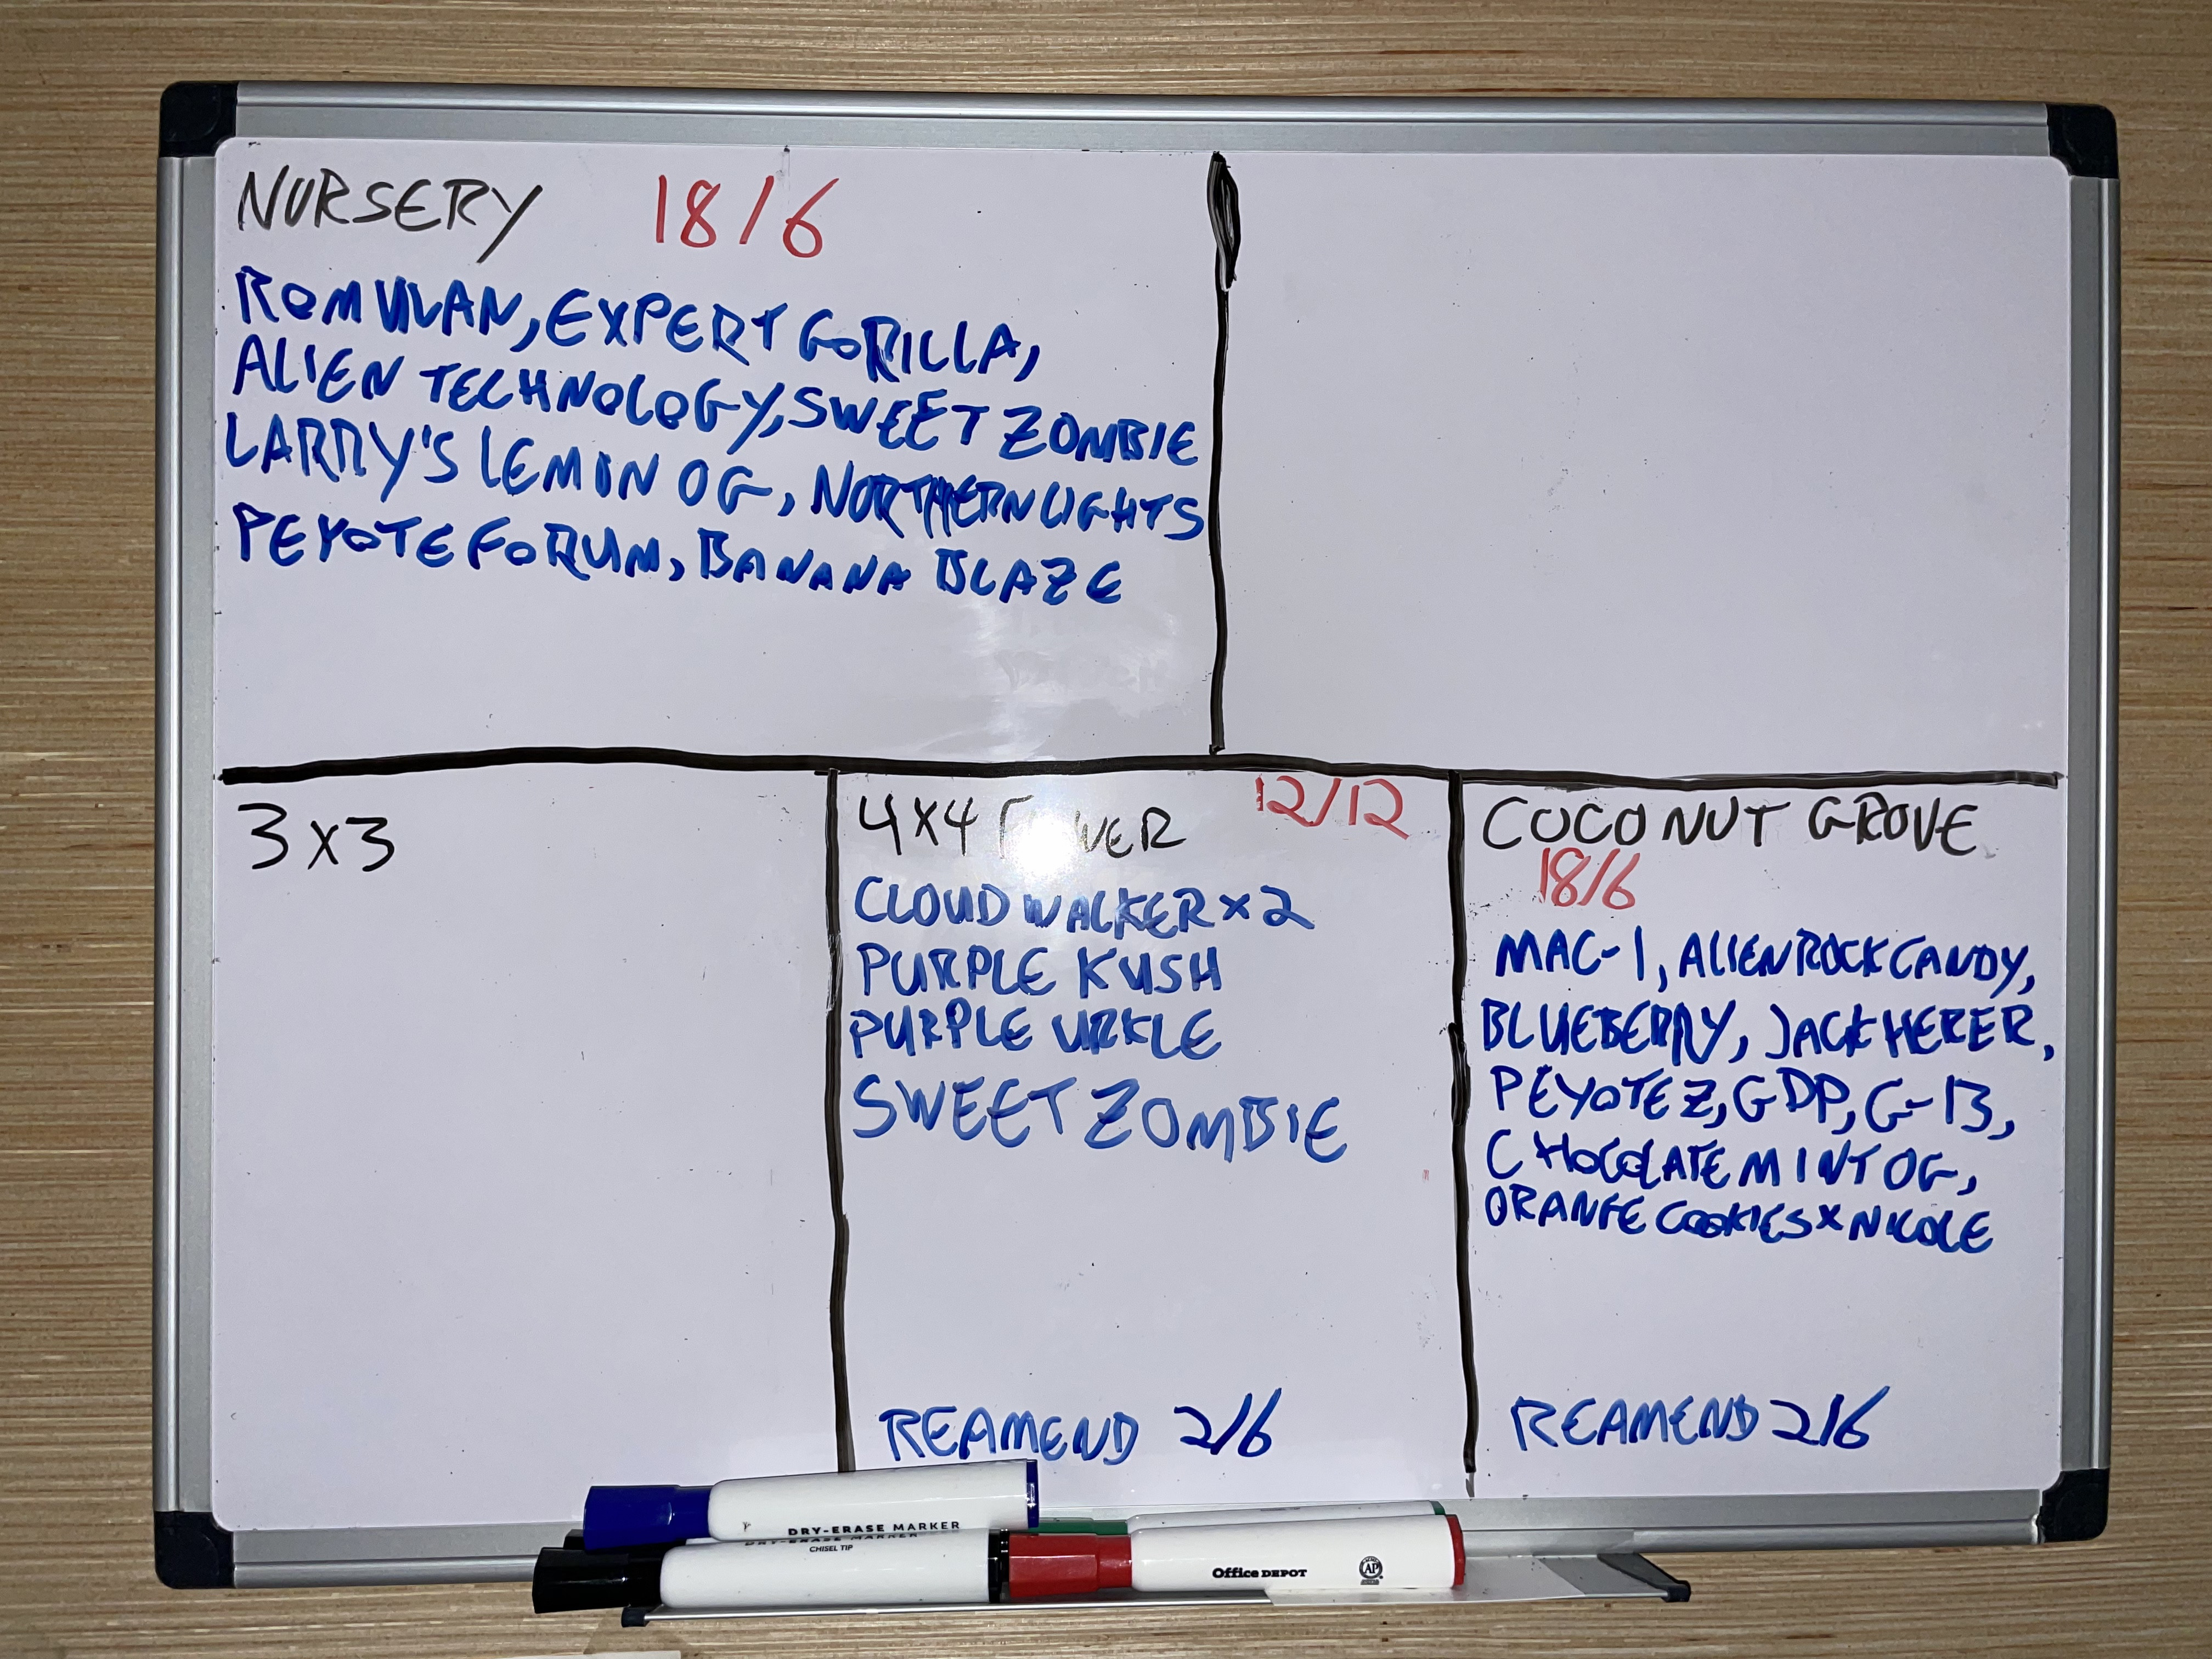 NURSERY 18/6
ROMULAN, EXPERT GORILLA,
ALIEN TECHNOLOGY, SWEET ZOMBIE
LARRY'S LEMIN OG, NORTHERN LIGHTS
PEYOTE FORUM, BANANA BLAZE
3x3
4x4 12/12
CLOUD WALKER x2
PURPLE KUSH
PURPLE URKLE
SWEET ZOMBIE
REAMEND 2/6
COCONUT GROVE
18/6
MAC-1, ALIEN ROCK CANDY,
BLUEBERRY, JACK HERER,
PEYOTE Z, GDP, G-13,
CHOCOLATE MINT OG,
ORANGE COOKIES x NICOLE
REAMEND 2/6
DRY-ERASE MARKER
DRY-ERASE MARKER
CHISEL TIP
Office DEPOT
AP